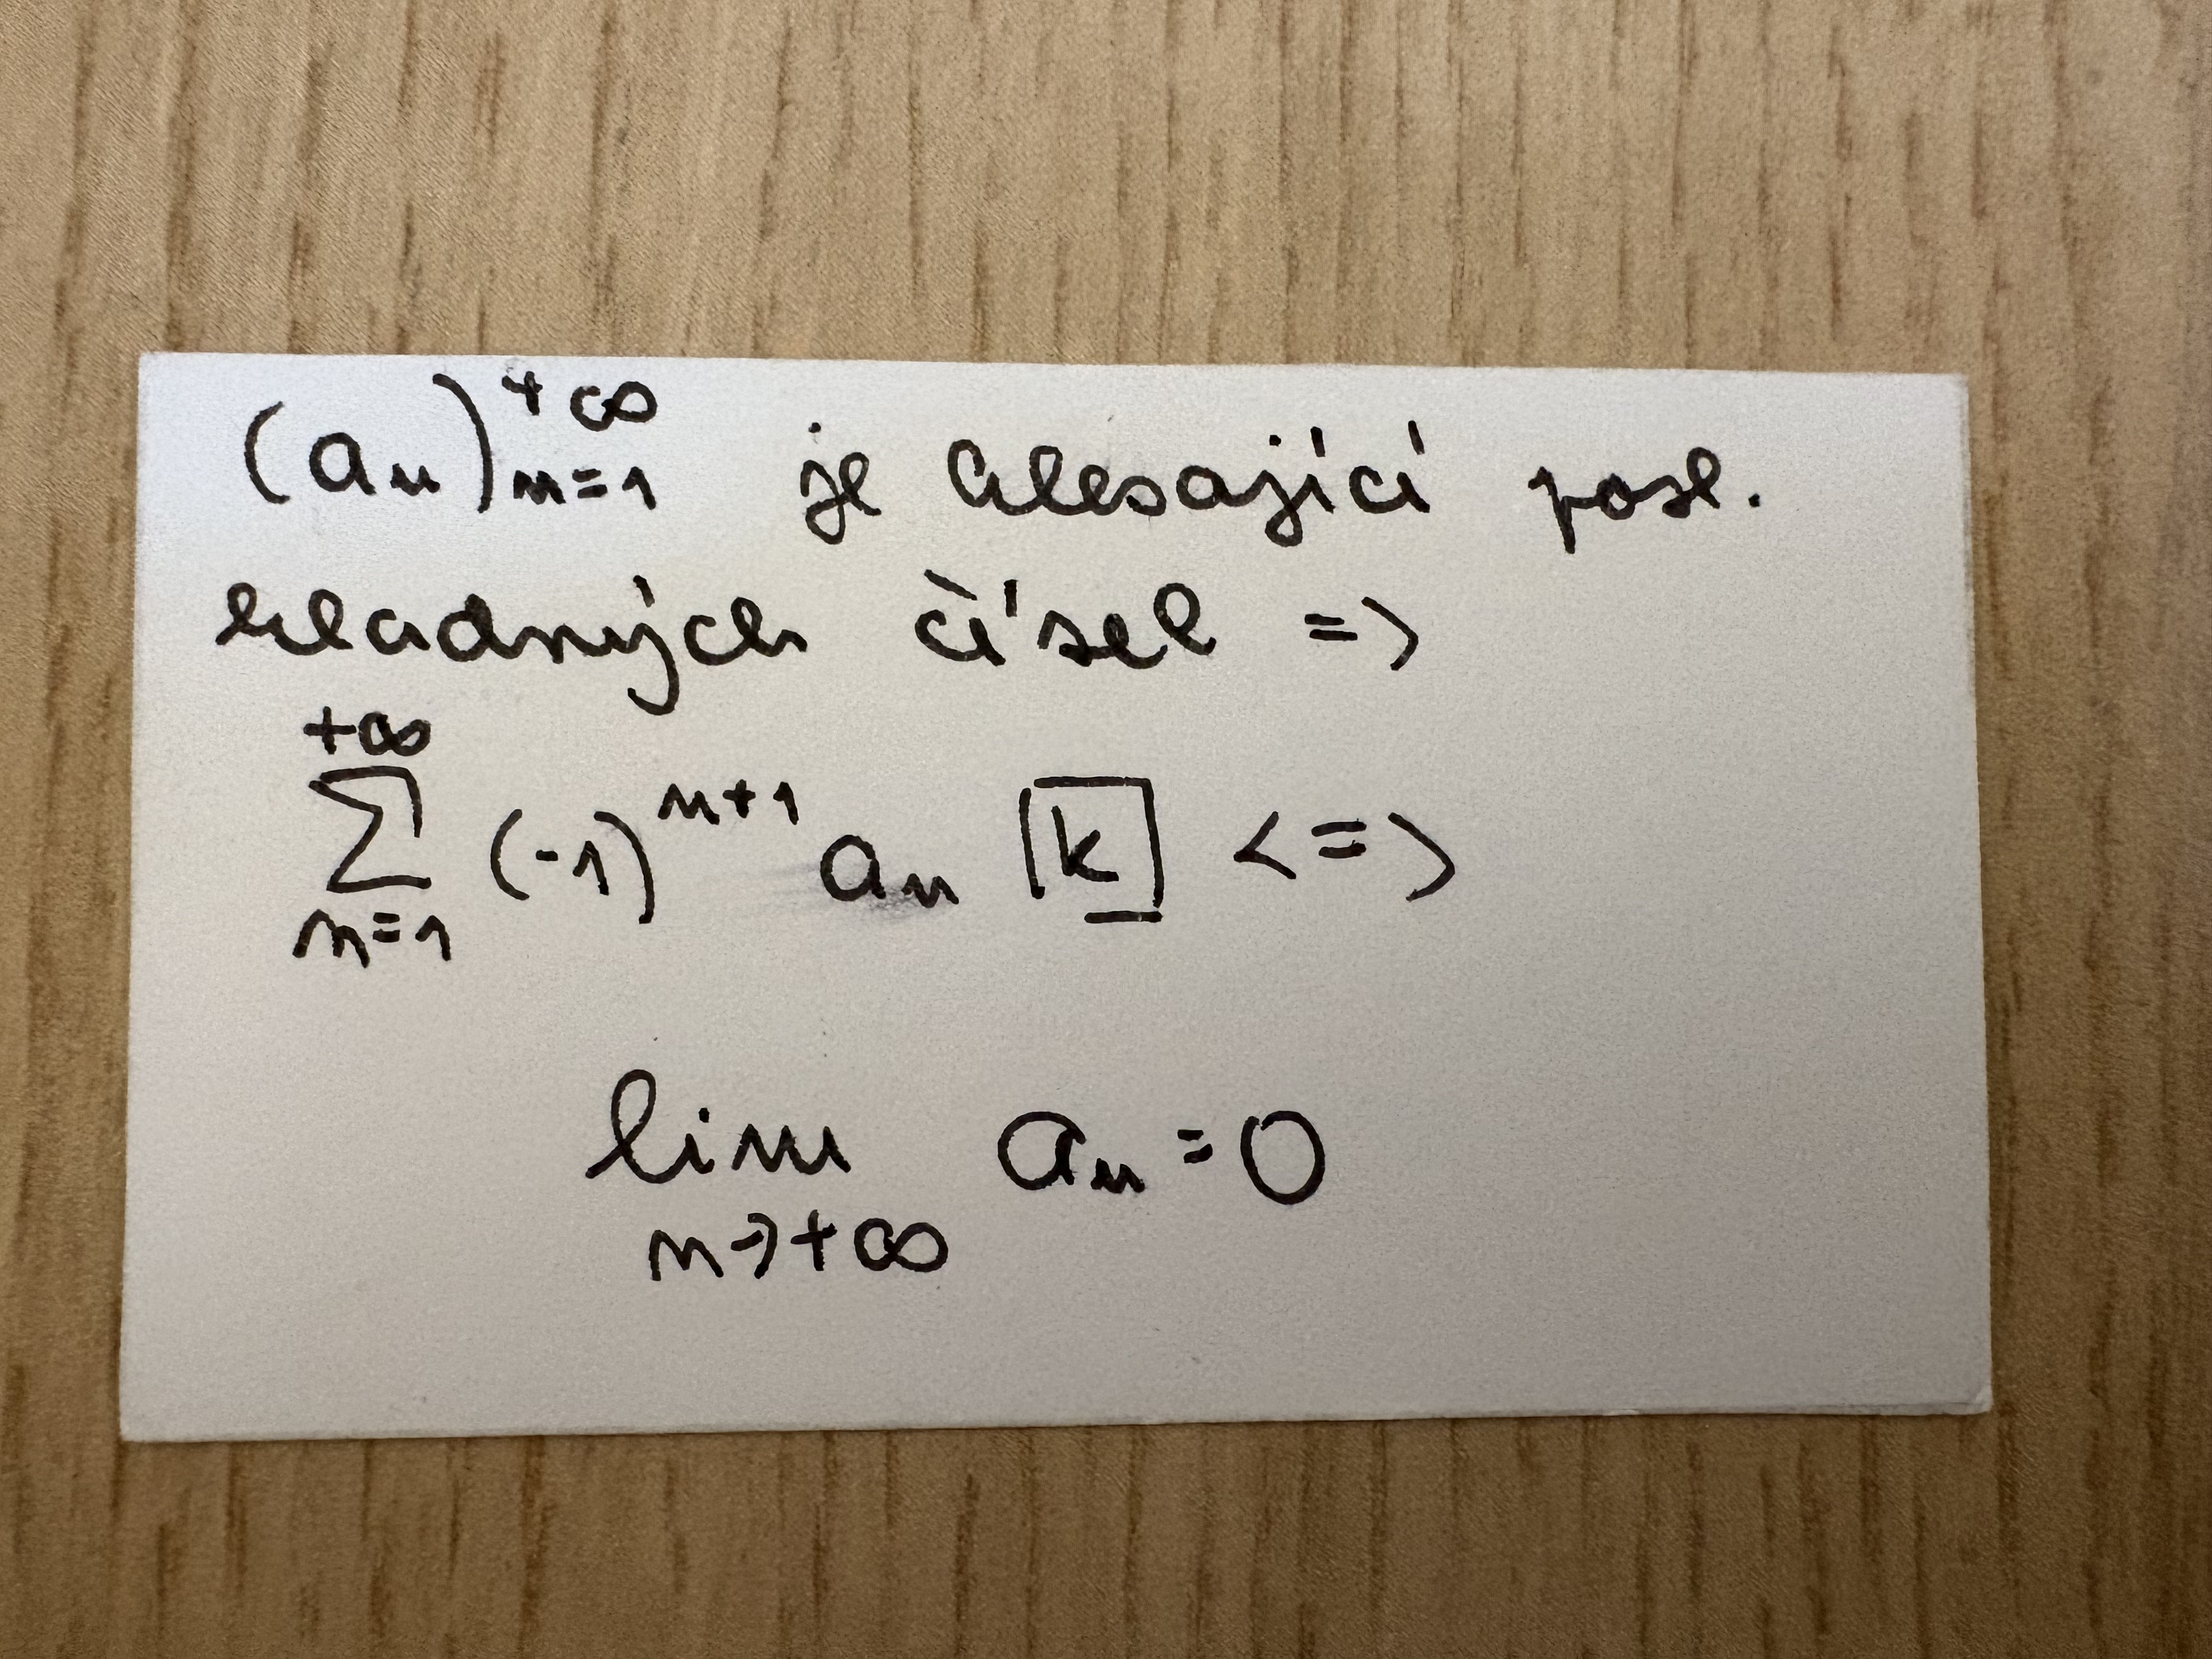 (aₙ)ₙ₌₁^{+∞} je klesající posl.
kladných čísel =>
+∞
∑ (-1)^{n+1} aₙ [k] <=>
n=1
lim aₙ = 0
n→+∞